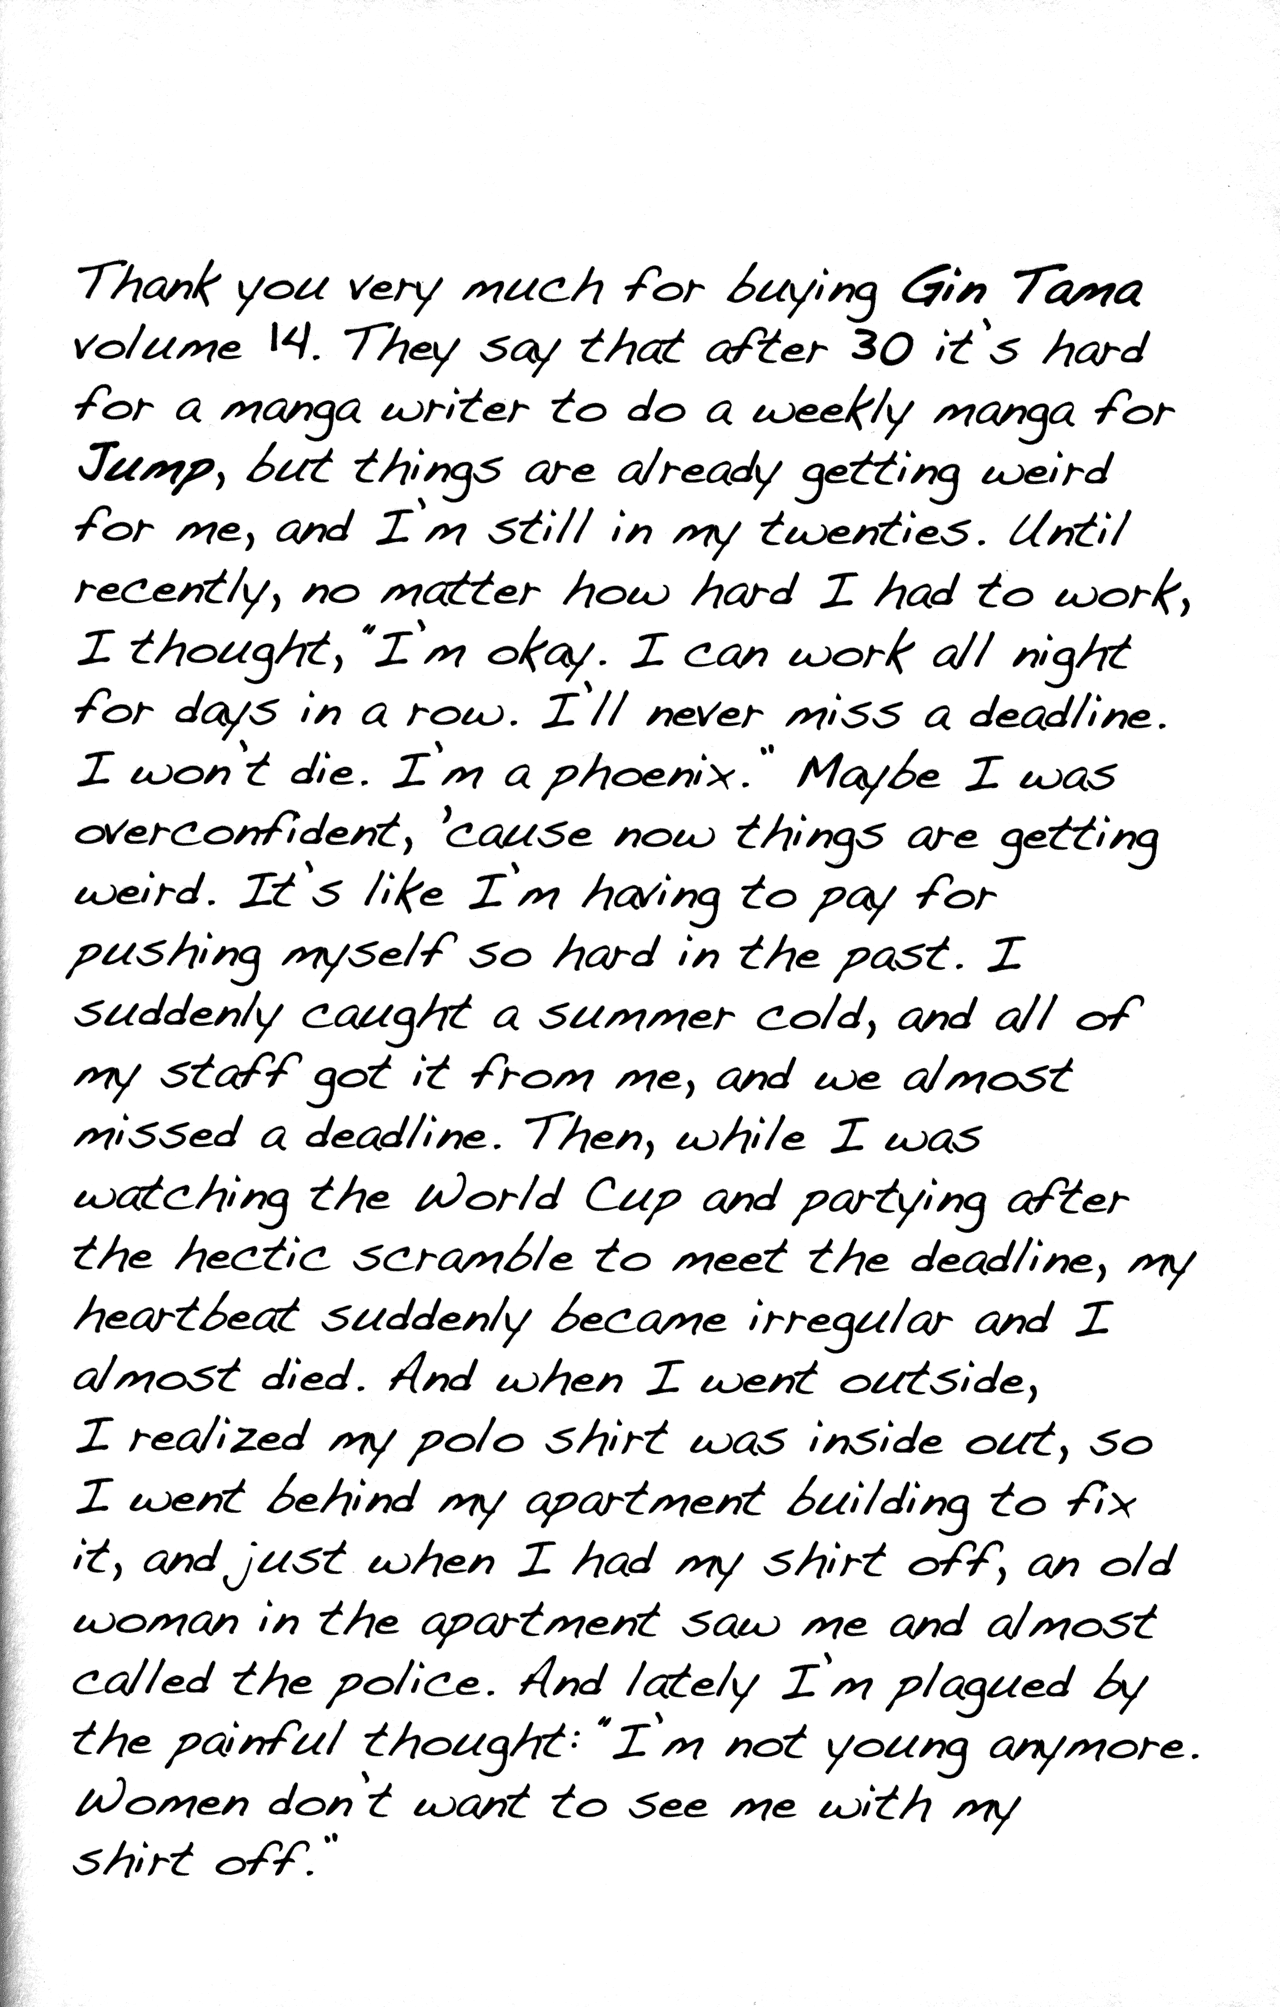 Thank you very much for buying Gin Tama
volume 14. They say that after 30 it's hard
for a manga writer to do a weekly manga for
Jump, but things are already getting weird
for me, and I'm still in my twenties. Until
recently, no matter how hard I had to work,
I thought, "I'm okay. I can work all night
for days in a row. I'll never miss a deadline.
I won't die. I'm a phoenix." Maybe I was
overconfident, 'cause now things are getting
weird. It's like I'm having to pay for
pushing myself so hard in the past. I
suddenly caught a summer cold, and all of
my staff got it from me, and we almost
missed a deadline. Then, while I was
watching the World Cup and partying after
the hectic scramble to meet the deadline, my
heartbeat suddenly became irregular and I
almost died. And when I went outside,
I realized my polo shirt was inside out, so
I went behind my apartment building to fix
it, and just when I had my shirt off, an old
woman in the apartment saw me and almost
called the police. And lately I'm plagued by
the painful thought: "I'm not young anymore.
Women don't want to see me with my
shirt off."